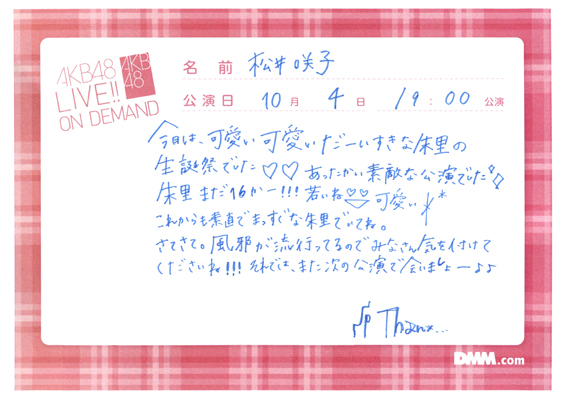 AKB48
LIVE!!
ON DEMAND
AKB
48
名 前 松井咲子
公演日 10月 4日 19:00 公演
今日は、可愛い可愛いだーいすきな朱里の
生誕祭でした♡♡ あったかい素敵な公演でした
朱里まだ16かー!!! 若いね♡♡ 可愛い
これからも素直でまっすぐな朱里でいてね。
さてさて。風邪が流行ってるのでみなさん気を付けて
くださいね!!! それでは、また次の公演で会いましょーよよ
Thanx...
DMM.com